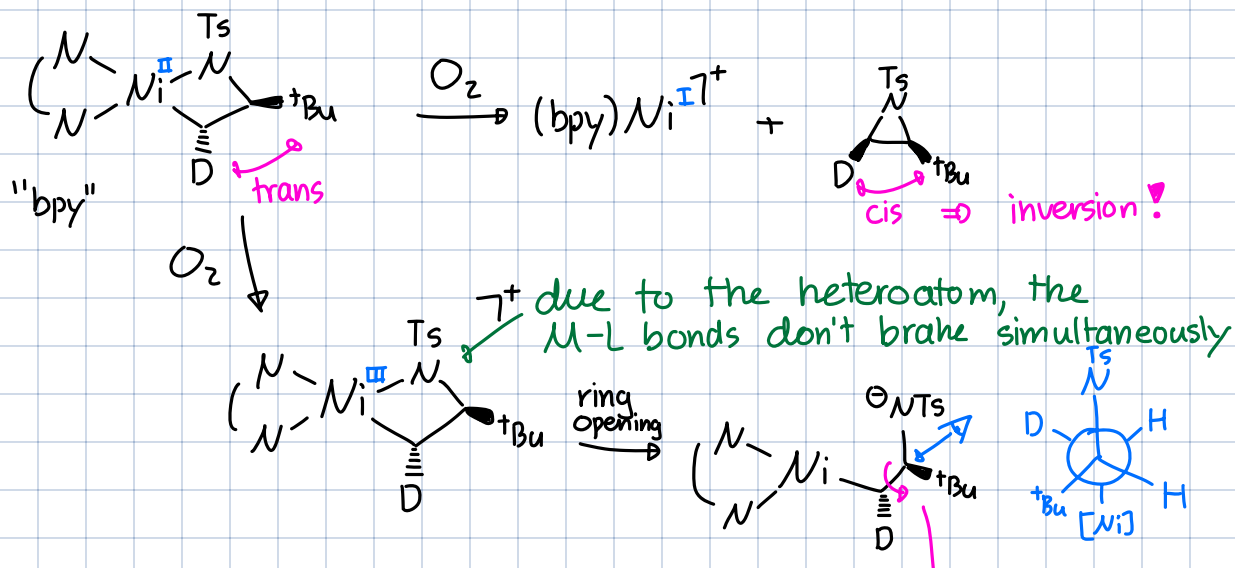 Ts
N
II
Ni
N
N
tBu
D
trans
"bpy"
O2
(bpy)Ni I ⌝+
+
Ts
N
D
tBu
cis ⇒ inversion!
O2
⌝+
due to the heteroatom, the
M-L bonds don't brake simultaneously
Ts
N
III
Ni
N
N
tBu
D
ring
opening
⊖NTs
N
Ni
N
tBu
D
Ts
N
D
H
tBu
H
[Ni]